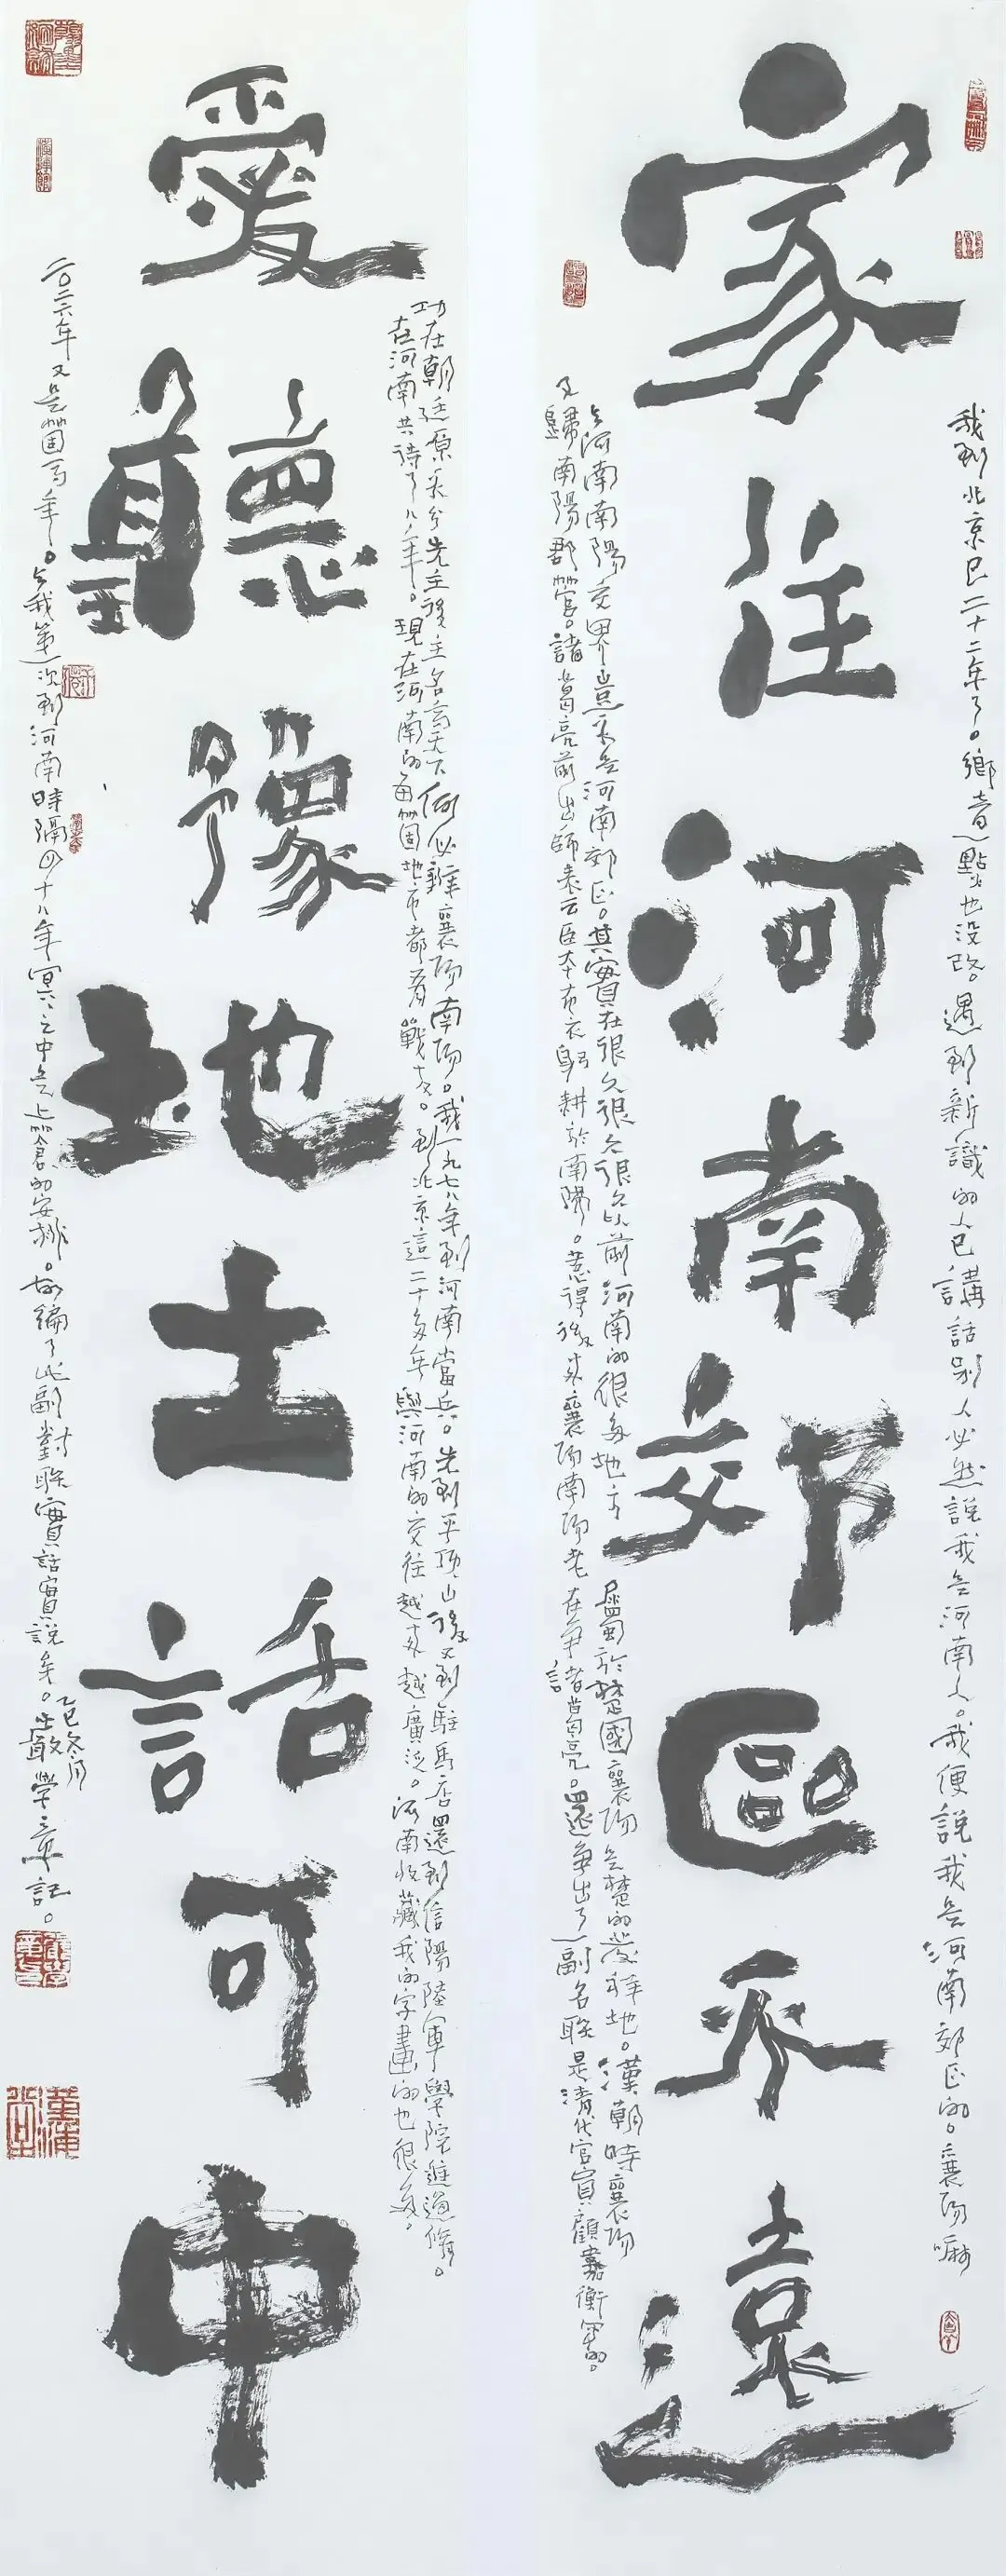 家住河南郊區不遠
我到北京已二十二年了。鄉音一點也没改。遇到新識的人已講話别人必然説我是河南人。我便説我是河南郊区的。襄陽嘛
與河南南陽交界豈不是河南郊区。其實在很久很久很久以前河南的很多地方屬於楚國襄陽是楚的發祥地。漢朝時襄陽
又歸南陽郡管。諸葛亮前出師表云臣本布衣躬耕於南陽。惹得後來襄陽南陽老在争諸葛亮。還争出了一副名联是清代官員顧嘉衡写的。
愛聽豫地土話可中
功在朝廷原无分先主後主名高天下何必辩襄陽南陽。我一九七八年到河南當兵。先到平頂山後又到駐馬店還到信陽陸軍學院進過修。
在河南共待了八年。現在河南的每個地市都有戰友。到北京這二十多年與河南的交往越来越廣泛。河南收藏我的字畫的也很多。
二〇二六年又是個马年。與我第一次到河南時隔四十八年冥冥之中是上蒼的安排。故編了此副對联實話實説矣。乙巳冬月
學章記。